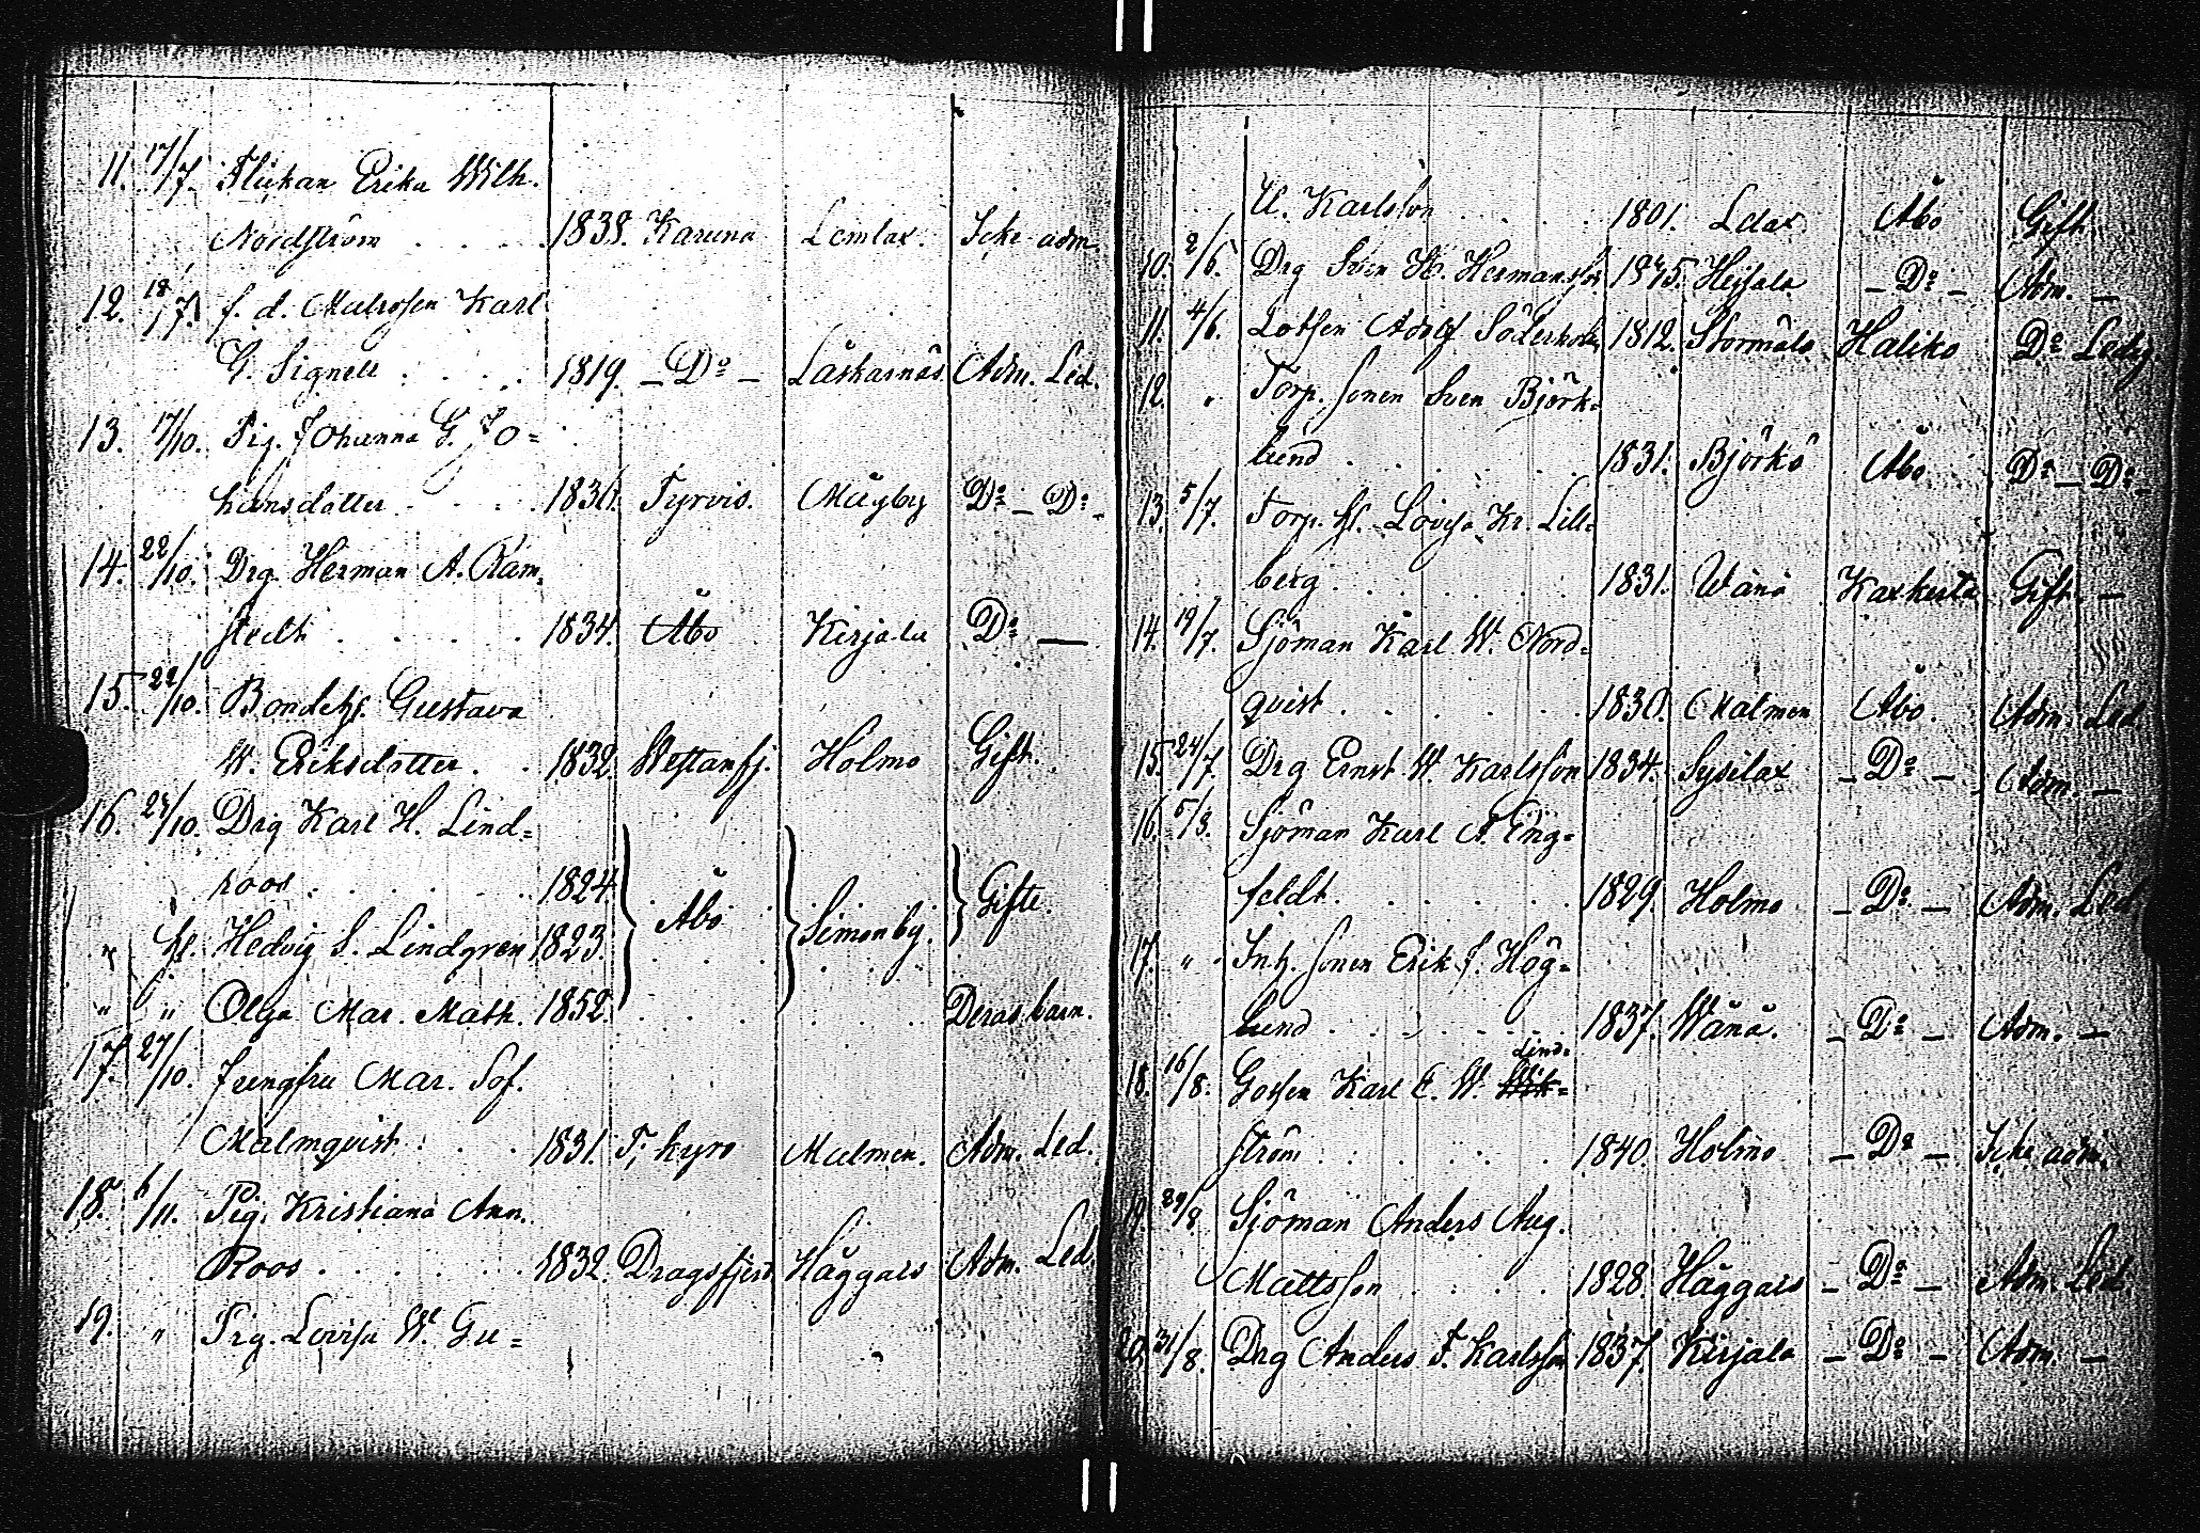 11. 17/7. Flickan Erika Wilh.
Nordström . . . . 1838. Karuna Lemlax. Icke adm.
12. 18/7. f. d. Matrosen Karl
G. Signell . . . . 1819. – Do – Läskarnäs Adm. Led.
13. 17/10. Pig. Johanna G. Jo=
hansdotter . . . . 1830. Tyrvis. Mågby Do – Do –
14. 22/10. Drg. Herman A. Ram=
stedt . . . . 1834. Åbo Kirjala Do —
15. 22/10. Bondehs. Gustava
W. Eriksdotter . . 1832. Westanfj. Holmo Gift.
16. 24/10. Drg Karl H. Lind=
roos . . . . . . 1824. Åbo Simonby. Gifte.
" hs. Hedvig S. Lindgren 1823.
" " Olga Mar. Math. 1852. . . . . Deras barn.
17. 27/10. Jungfru Mar. Sof.
Malmqvist . . . 1831. T. kyro Malmen. Adm. Led.
18. 6/11. Pig. Kristiana Ann.
Roos . . . . . . 1832. Dragsfjerd Häggars Adm. Led.
19. " Pig. Lovisa W. Gu=
U. Karlsson . . . . 1801. Ldax Åbo Gift.
10. 2/6. Drg Sven H. Hermansson Heisala – Do – Adm. –
11. 4/6. Lotsen Adolf Söderholm 1812. Stormälö Haliko Do Ledig.
12. " Torp. sonen Sven Björk=
lund . . . . . . 1831. Björkö Åbo Do – Do –
13. 5/7. Torp. hs. Lovisa Kr. Lill=
berg . . . . . . 1831. Wänö Kaxkerta Gift. –
14. 19/7. Sjöman Karl W. Nord=
qvist . . . . . . 1830. Malmen Åbo. Adm. Led.
15. 24/7. Drg Ernst W. Karlsson 1834. Sysilax – Do – Adm. –
16. 5/8. Sjöman Karl A. Eng=
feldt . . . . . . 1829. Holmo – Do – Adm. Led.
17. " Inh. sonen Erik J. Hög=
lund . . . . . . 1837. Wänö. – Do – Adm. –
Lind=
18. 16/8. Gossen Karl E. W. Wik=
ström . . . . . 1840. Holmo – Do – Icke adm.
19. 29/8. Sjöman Anders Aug.
Mattsson . . . . 1828. Häggars – Do – Adm. Led.
20. 31/8. Drg Anders F. Karlsson 1837. Kirjala – Do – Adm. –